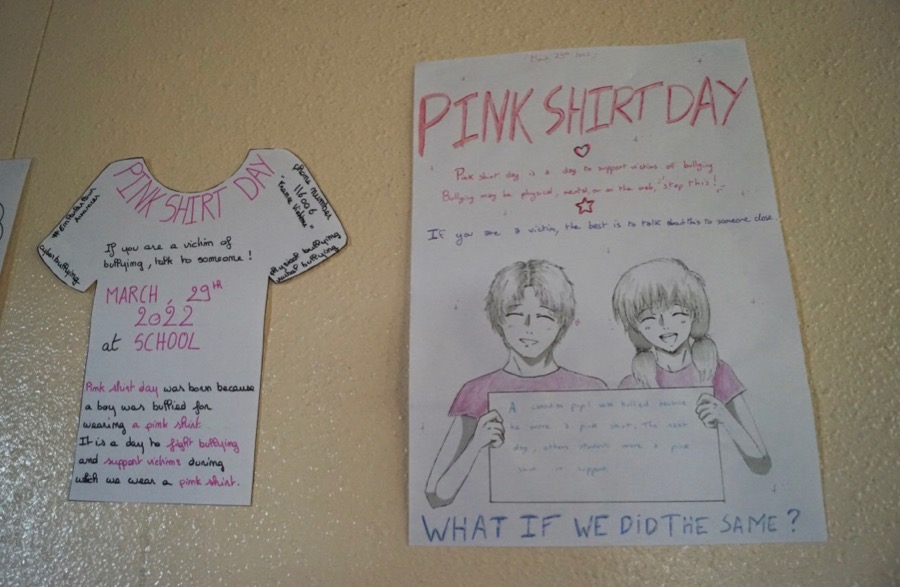 PINK SHIRT DAY
#EmilieMonk
phone number
116006
"France Victimes"
cyberbullying
physical bullying
verbal bullying
If you are a victim of
bullying, talk to someone!
MARCH, 29TH
2022
at SCHOOL
Pink shirt day was born because
a boy was bullied for
wearing a pink shirt.
It is a day to fight bullying
and support victims during
which we wear a pink shirt.
PINK SHIRT DAY
Pink shirt day is a day to support victims of bullying
Bullying may be physical, mental, or on the web, "stop this!"
If you are a victim, the best is to talk about this to someone close
A canadian pupil was bullied because
he wore a pink shirt. The next
day, others students wore a pink
shirt in support
WHAT IF WE DID THE SAME?